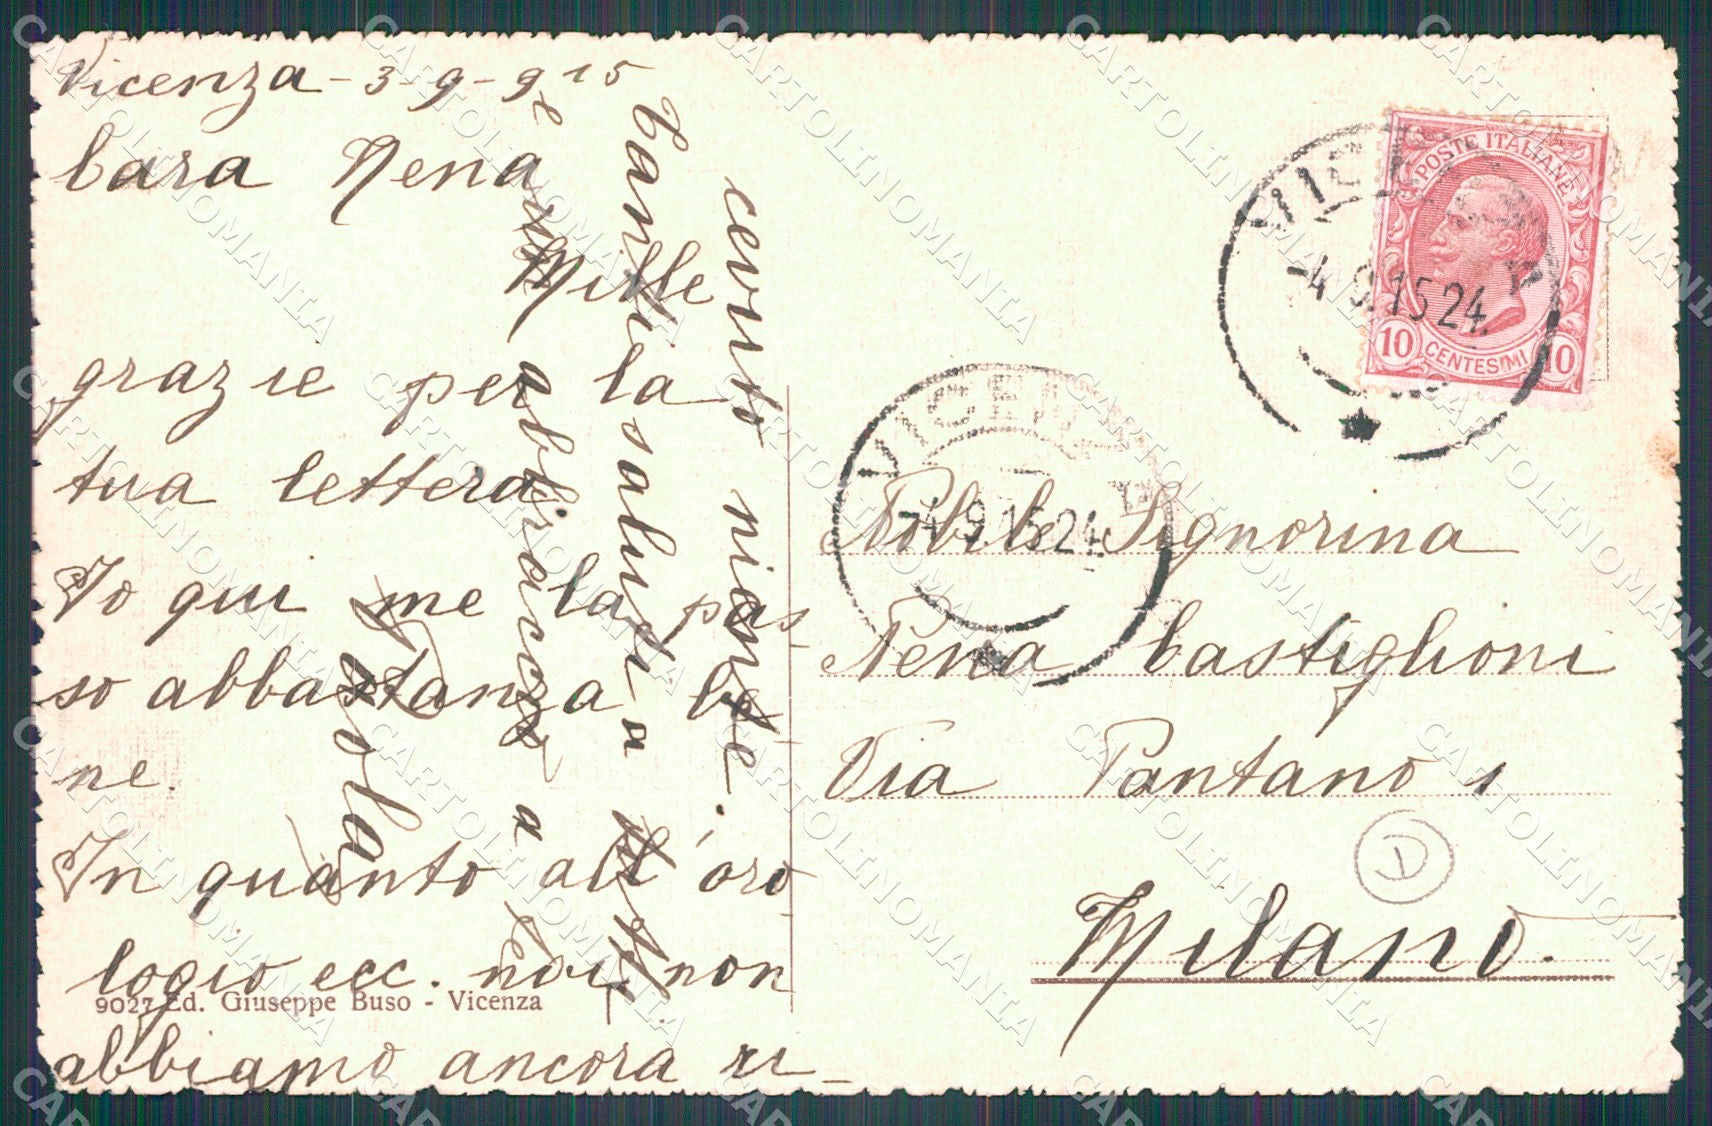 Vicenza - 3 - 9 - 915
Cara Nena
Mille
grazie per la
tua lettera
Io qui me la pas
so abbastanza be
ne.
In quanto all'oro_
logio ecc. noi non
abbiamo ancora ri_
cevuto niente.
Tanti saluti a tutti
e un abbraccio a
te.
9027 Ed. Giuseppe Buso - Vicenza
POSTE ITALIANE
10 CENTESIMI 10
VICENZA
-4.9.15 24
VICENZA
-4.9.15 24
Nobile Signorina
Nena Castiglioni
Via Pantano 1
Milano.
D
CARTOLINOMANIA